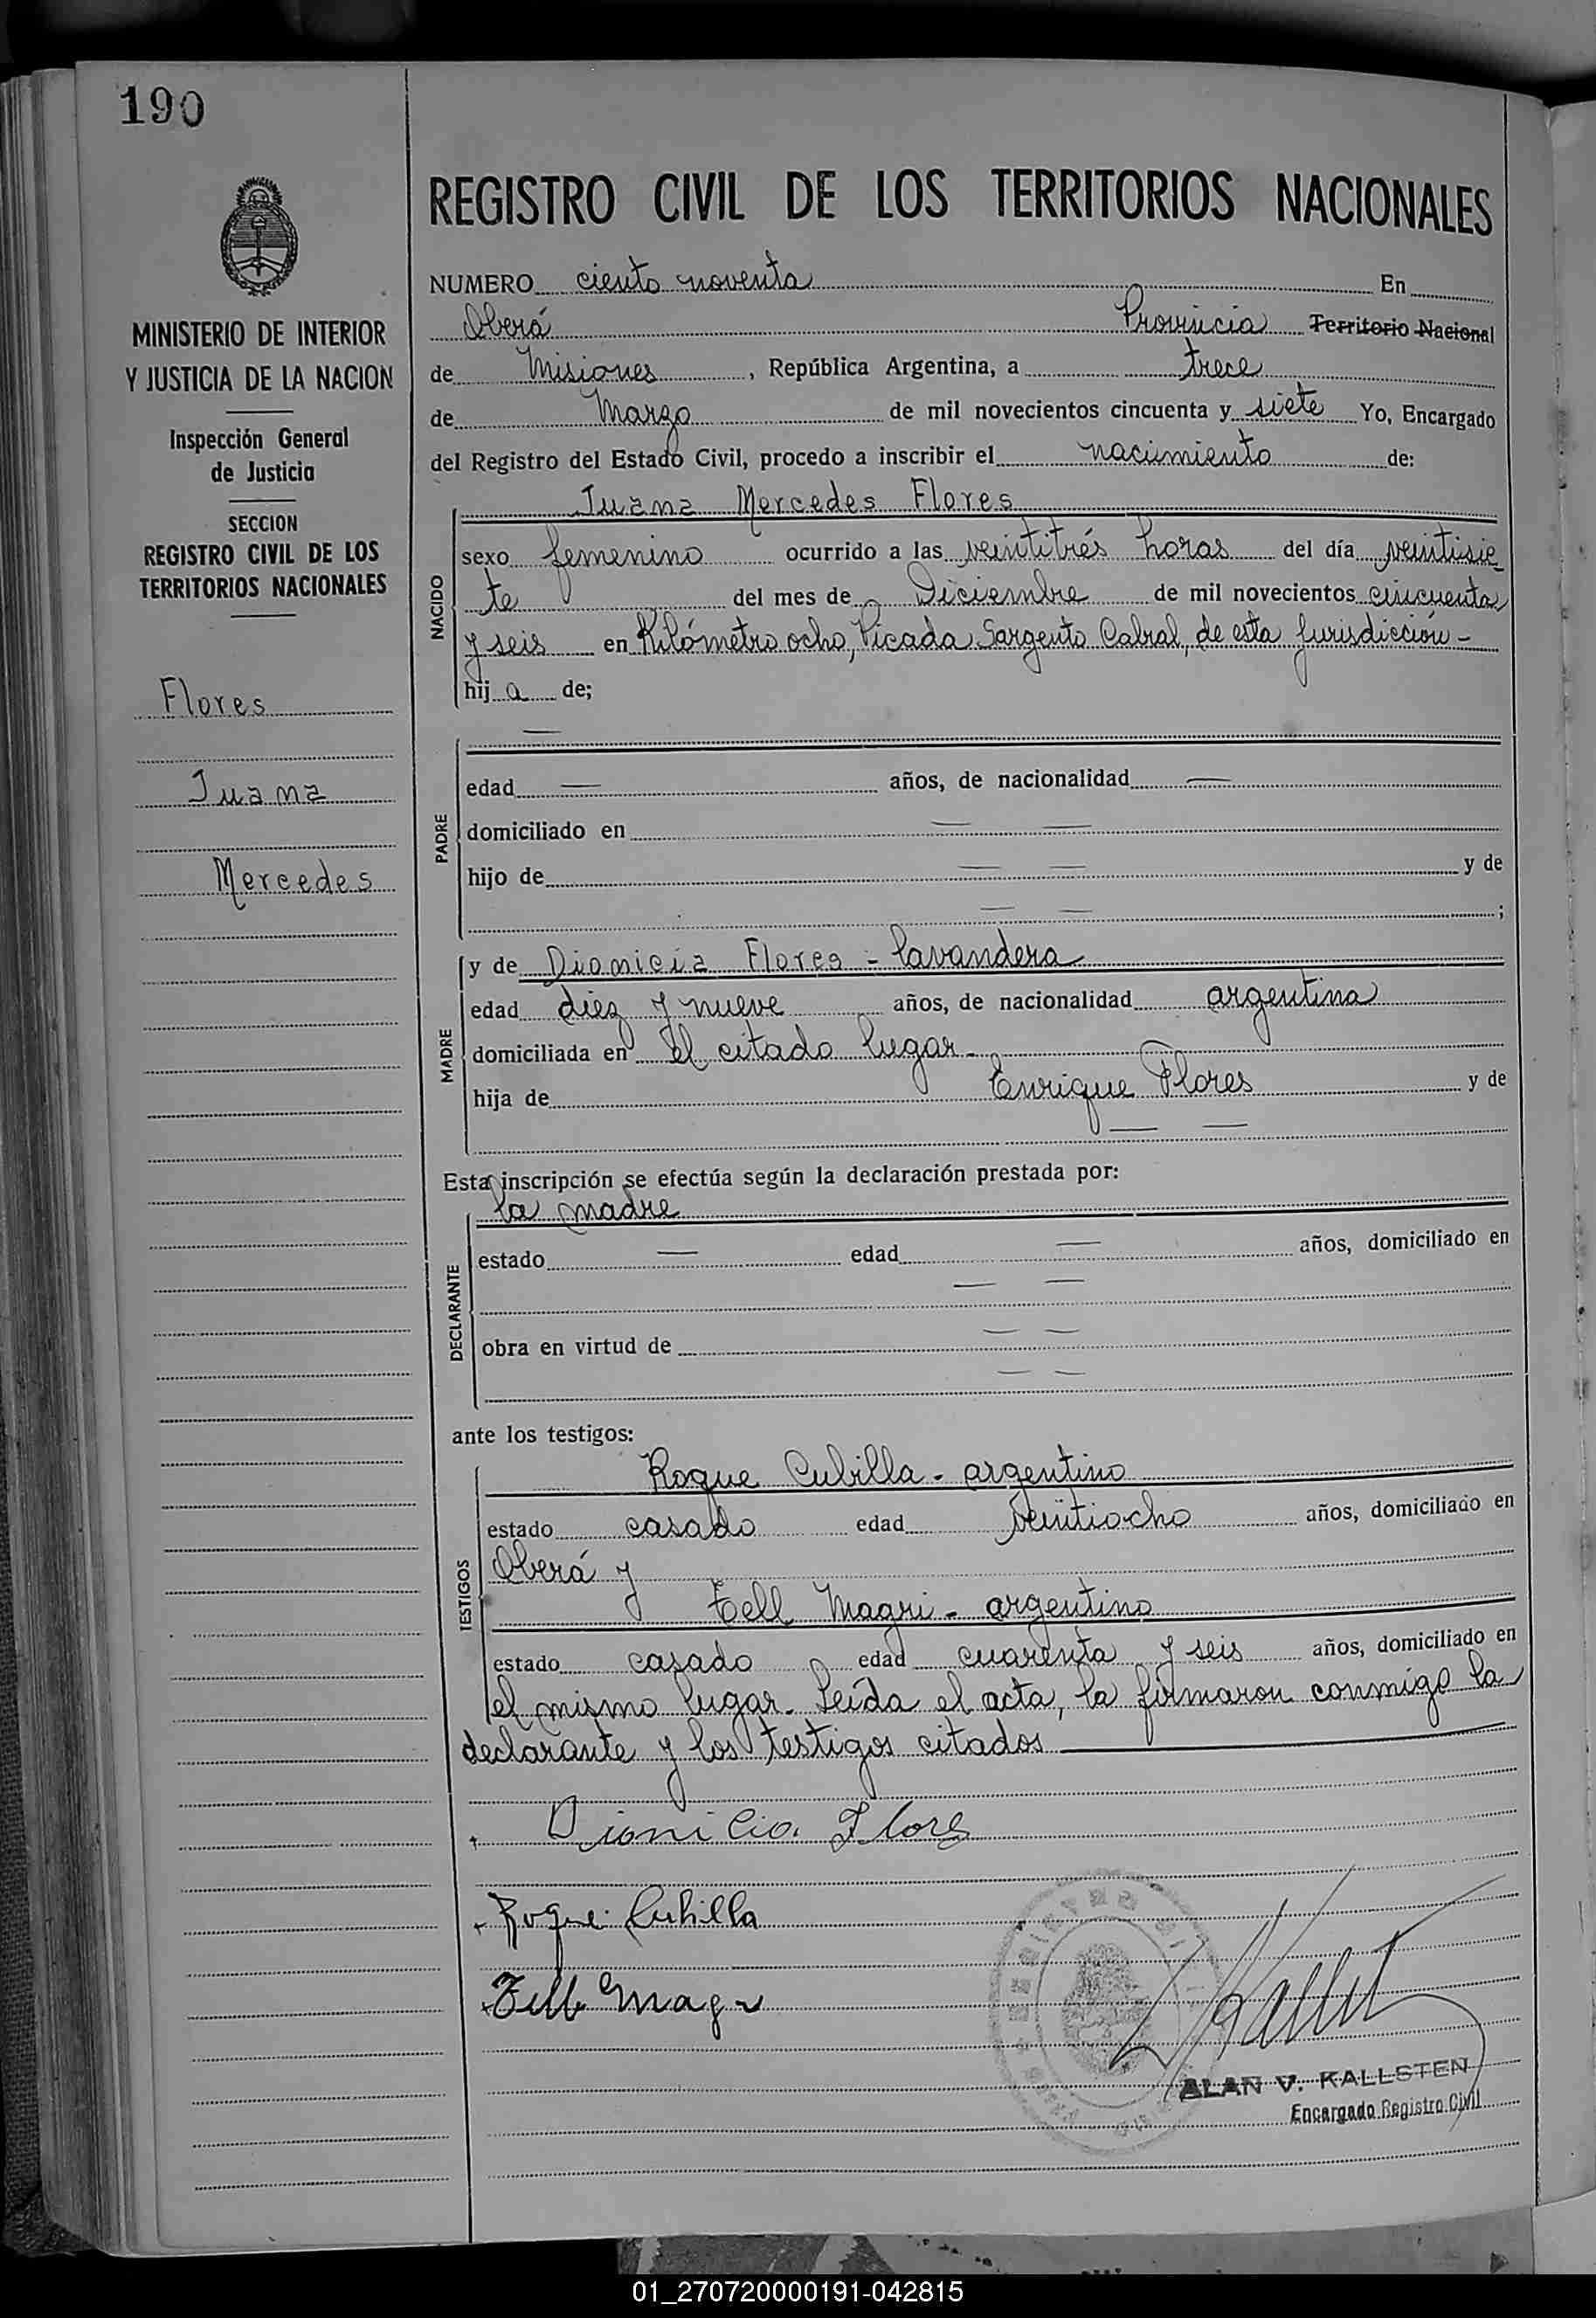 190
MINISTERIO DE INTERIOR
Y JUSTICIA DE LA NACION
Inspección General
de Justicia
SECCION
REGISTRO CIVIL DE LOS
TERRITORIOS NACIONALES
Flores
Juana
Mercedes
REGISTRO CIVIL DE LOS TERRITORIOS NACIONALES
NUMERO ciento noventa En
Oberá Provincia Territorio Nacional
de Misiones, República Argentina, a trece
de Marzo de mil novecientos cincuenta y siete Yo, Encargado
del Registro del Estado Civil, procedo a inscribir el nacimiento de:
Juana Mercedes Flores
NACIDO
sexo femenino ocurrido a las veintitrés horas del día veintisie
te del mes de Diciembre de mil novecientos cincuenta
y seis en Kilómetro ocho, Picada Sargento Cabral, de esta jurisdicción -
hij a de;
—
PADRE
edad — años, de nacionalidad —
domiciliado en — —
hijo de — — y de
— — ;
MADRE
y de Dionicia Flores - lavandera
edad diez y nueve años, de nacionalidad argentina
domiciliada en el citado lugar -
hija de Enrique Flores y de
— —
Esta inscripción se efectúa según la declaración prestada por:
la madre
DECLARANTE
estado — edad — años, domiciliado en
— —
obra en virtud de — —
— —
ante los testigos:
TESTIGOS
Roque Cubilla - argentino
estado casado edad veintiocho años, domiciliado en
Oberá y
Tell Magri - argentino
estado casado edad cuarenta y seis años, domiciliado en
el mismo lugar. Leída el acta, la firmaron conmigo la
declarante y los testigos citados
Dionicia Flores
Roque Cubilla
Tell Magri
ALAN V. KALLSTEN
Encargado Registro Civil
01_270720000191-042815